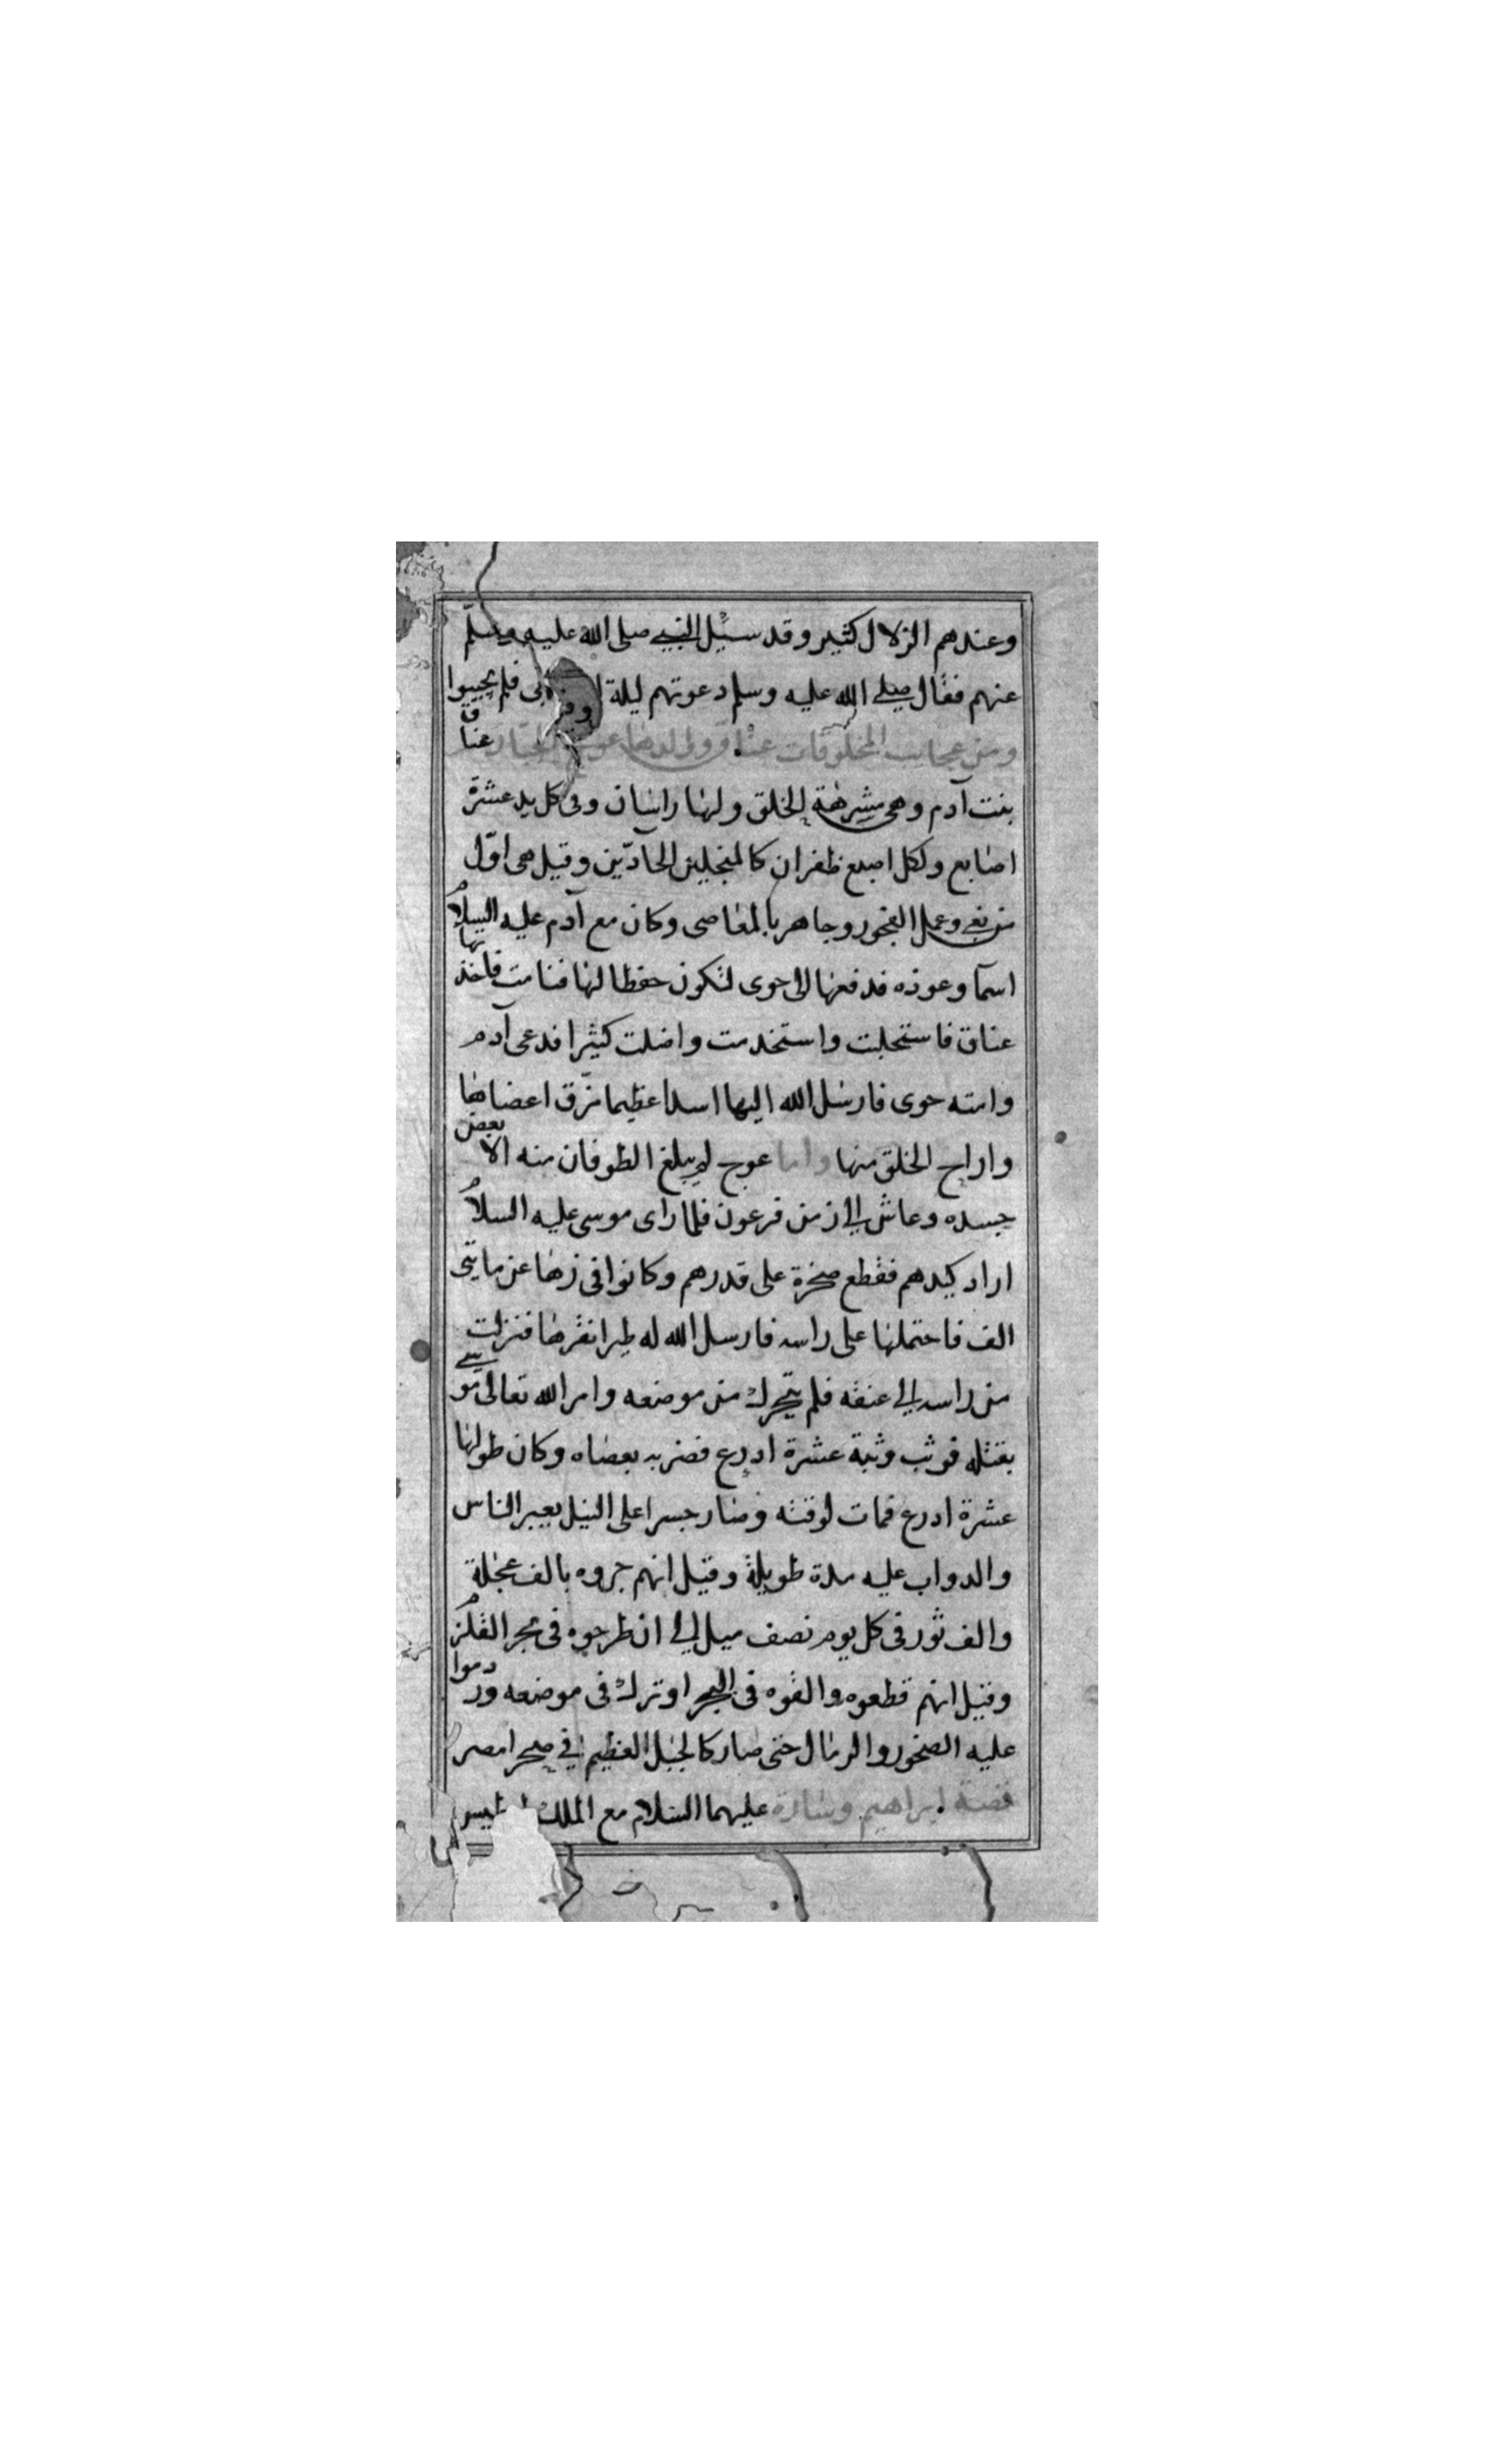 وعندهم الزلازل كثير وقد سئيل النبي صلى الله عليه وسلّم
عنهم فقال صلى الله عليه وسلم دعوتهم ليلة فلم يجيبوا
ومن عجايب المخلوقات عناق وولدها عوج الجبار عناق
بنت آدم وهى مشرهة الخلق ولها راسان وفى كل يد عشرة
اصابع ولكل اصبع ظفران كالمنجلين الحادّين وقيل هى اوّل
من بغى وعمل الفجور وجاهر بالمعاصى وكان مع آدم عليه السلام
اسمآ وعوذه فدفعها الى حوى لتكون حفظا لها فنامت فاخذتها
عناق فاستحلبت واستخدمت واضلت كثيرا فدعى آدم
وامنه حوى فارسل الله اليها اسدا عظيما مزّق اعضاها
واراح الخلق منها واما عوج لم يبلغ الطوفان منه الا بعض
جسده وعاش الى زمن فرعون فلما راى موسى عليه السلام
اراد كيدهم فقطع صخرة على قدرهم وكانوا فى زها عن مايتى
الف فاحتملها على راسه فارسل الله له طيرا نقرها فنزلت
من راسه الى عنقه فلم يتحرك من موضعه وامر الله تعالى موسى
بقتله فوثب وثبة عشرة ادرع فضربه بعصاه وكان طولها
عشرة ادرع فمات لوقته وصار جسرا على النيل يعبر الناس
والدواب عليه مدة طويلة وقيل انهم جروه بالف عجلة
والف ثور فى كل يوم نصف ميل الى ان طرحوه فى بحر القلزم
وقيل انهم قطعوه والقوه فى البحر او ترك فى موضعه وردموا
عليه الصخور والرمال حتى صار كالجبل العظيم فى صحرا مصر
قصة ابراهيم وسارة عليهما السلام مع الملك